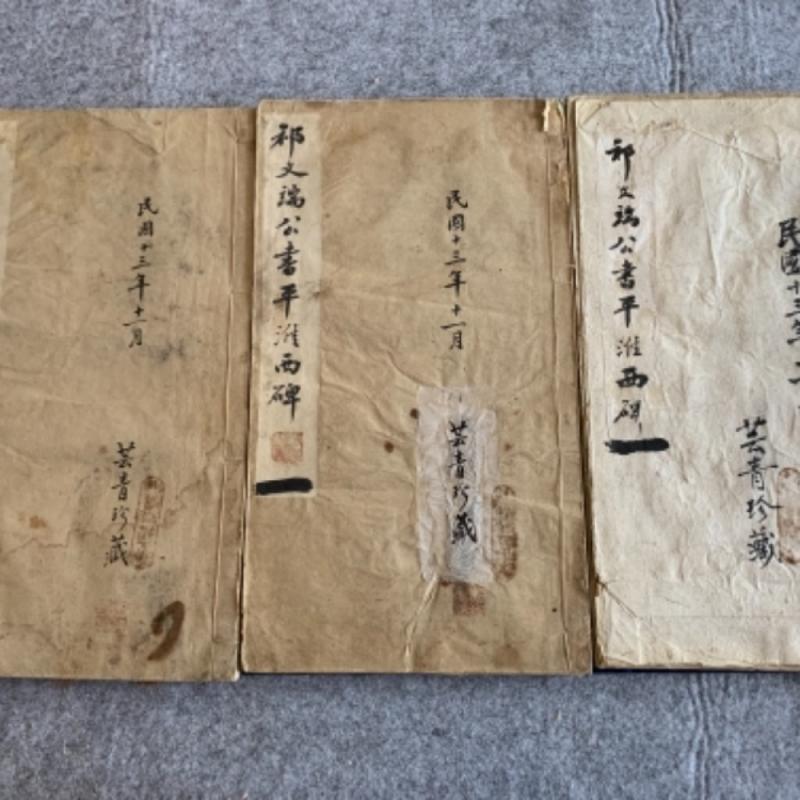 民國十三年十一月
芸青珍藏
祁文端公書平淮西碑
民國十三年十一月
芸青珍藏
祁文端公書平淮西碑
民國十三年
芸青珍藏